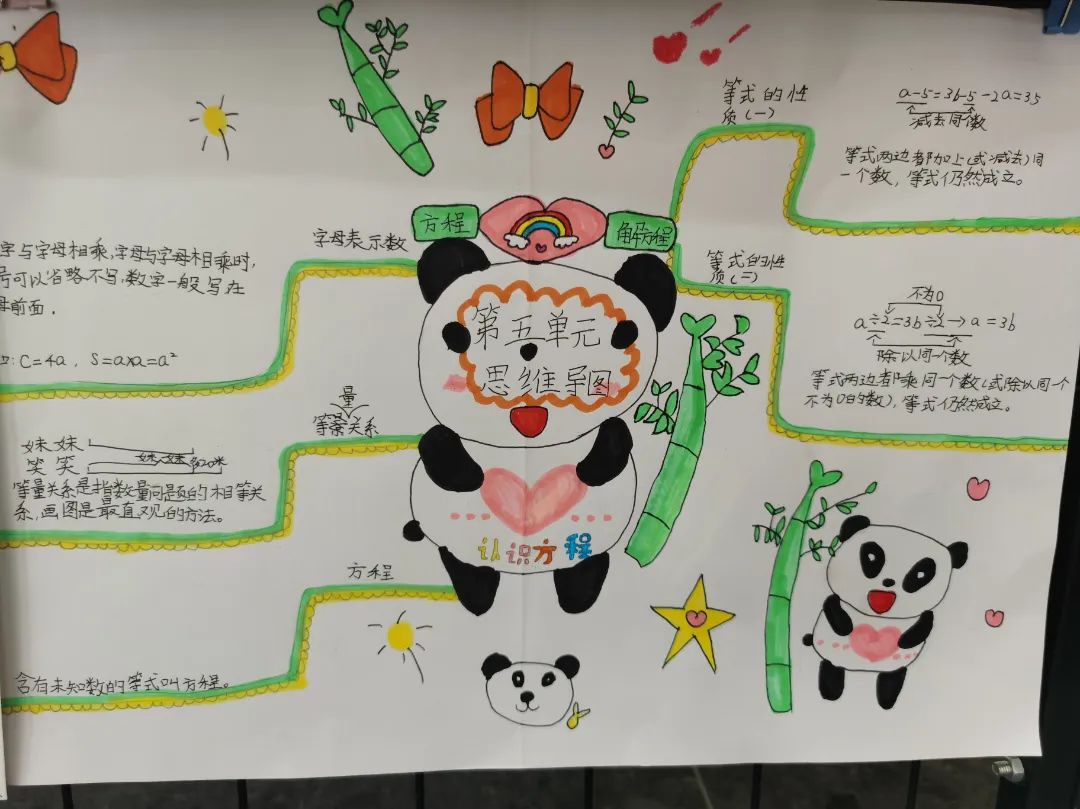 第五单元
思维导图
认识方程
方程
解方程
字母表示数
字与字母相乘,字母与字母相乘时,
号可以省略不写,数字一般写在
母前面.
C=4a, S=a×a=a²
量
等量关系
妹妹
笑笑
妹妹
20米
等量关系是指数量问题的相等关
系,画图是最直观的方法。
方程
含有未知数的等式叫方程。
等式的性
质(一)
a-5=3b-5→a=35
减去同个数
等式两边都加上(或减去)同
一个数,等式仍然成立。
等式的性
质(二)
不为0
a÷2=3b÷2→a=3b
除以同一个数
等式两边都乘同一个数(或除以同一个
不为0的数),等式仍然成立。